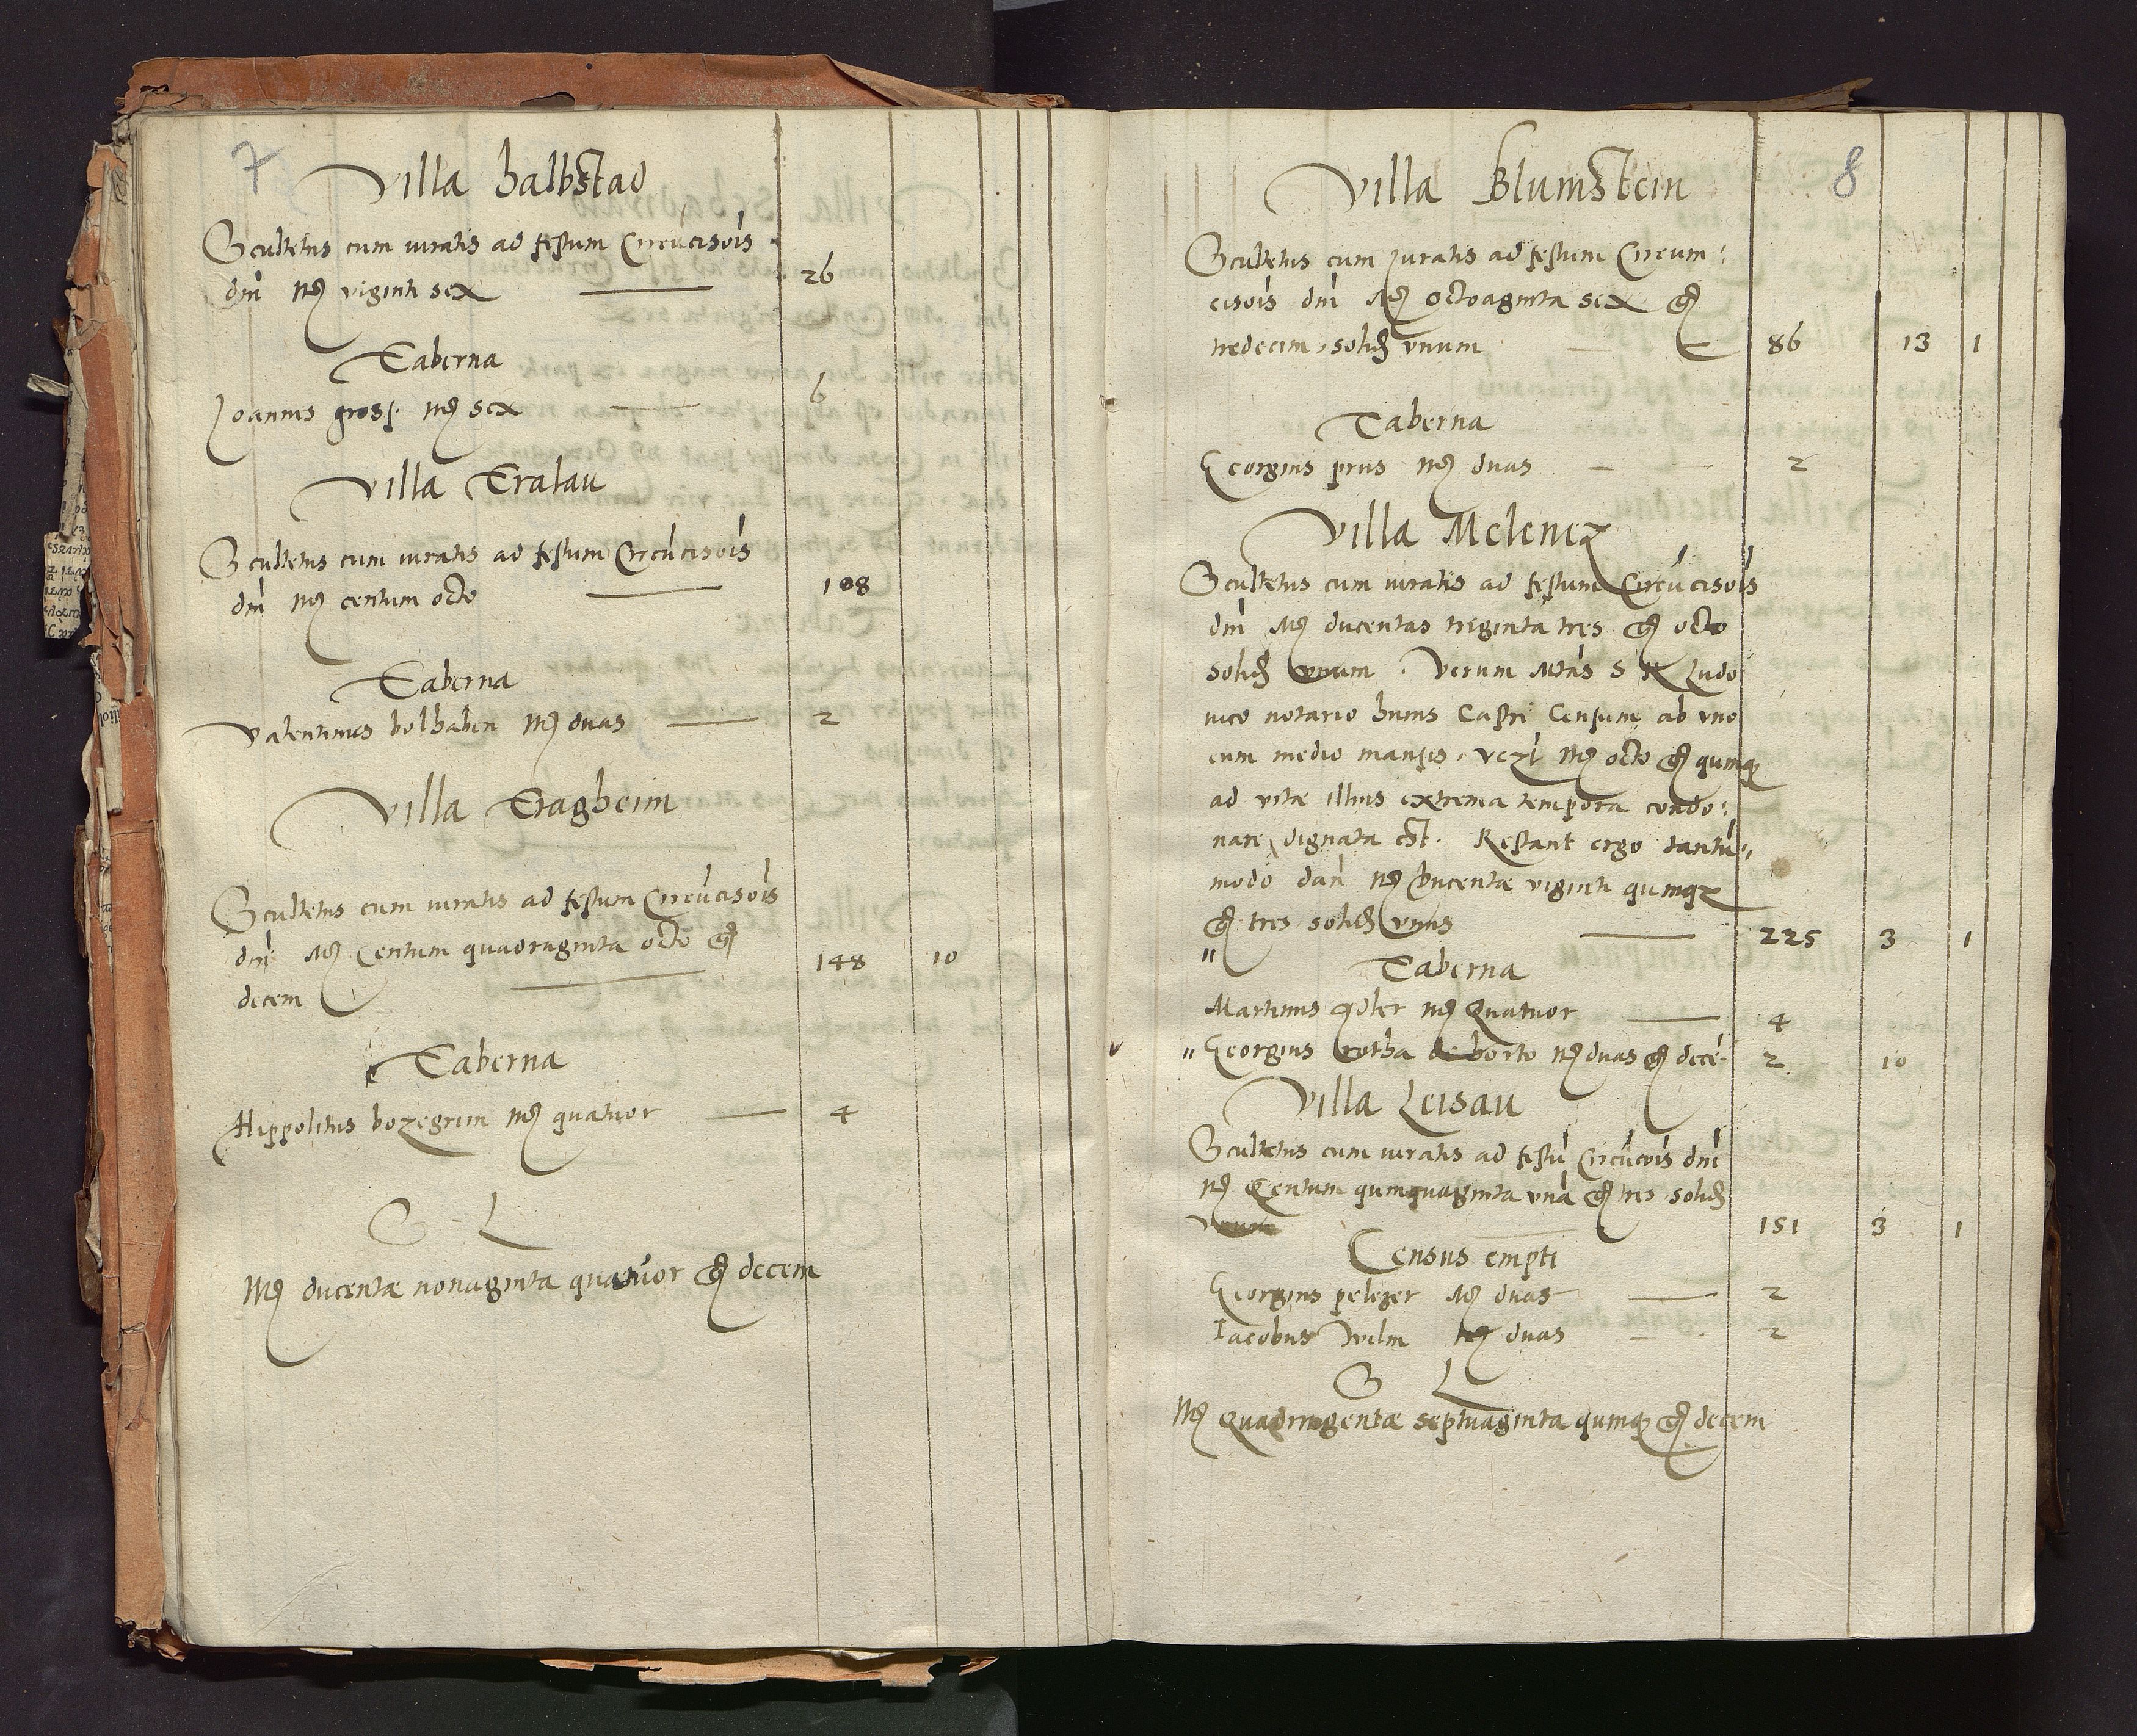 7
Villa halbstad
Scultetus cum iuratis ad festum Circūcisōis
dn̄i M̃ viginti sex 26
Taberna
Joannis gross. M̃ sex 6
Villa Tralau
Scultetus cum iuratis ad festum Circūcisōis
dn̄i M̃ centum octo 108
Taberna
Valentinus bolhaben M̃ duas 2
Villa Tragheim
Scultetus cum iuratis ad festum Circūcisōis
dn̄i M̃ Centum quadraginta octo g̃
decem 148 10
Taberna
Hippolitus bozegrim M̃ quatuor 4
S L
M̃ ducentæ nonaginta quatuor g̃ decem
8
Villa Blumstein
Scultetus cum juratis ad festum Circum:
cisōis dn̄i M̃ octoaginta sex g̃
tredecim solid̃ vnum 86 13 1
Taberna
Georgius prus M̃ duas 2
Villa Melenez
Scultetus cum iuratis ad festum Circūcisōis
dn̄i M̃ ducentas triginta tres g̃ octo
solid̃ vnum. Verum Mtās S R Ludo
uico notario huius Castri Censum ab vno
cum medio mansis. vczł M̃ octo g̃ quinq̃
ad vitæ illius extrema tempora condo:
nare dignata est. Restant ergo tantū"
modo dari M̃ ducentæ viginti quinqz
g̃ tres solid̃ vnus 225 3 1
" Taberna
Martinus M̃ Quatuor 4
" Georgius rotha de horto M̃ duas g̃ decē 2 10
Villa Leisau
Scultetus cum iuratis ad festū Circūcōis dn̄i
M̃ Centum quinquaginta vnā g̃ tres solid̃
vnum 151 3 1
Census empti
Georgius pelczer M̃ duas 2
Iacobus Wilm M̃ duas 2
S L
M̃ Quadringentæ septuaginta quinq̃ g̃ decem